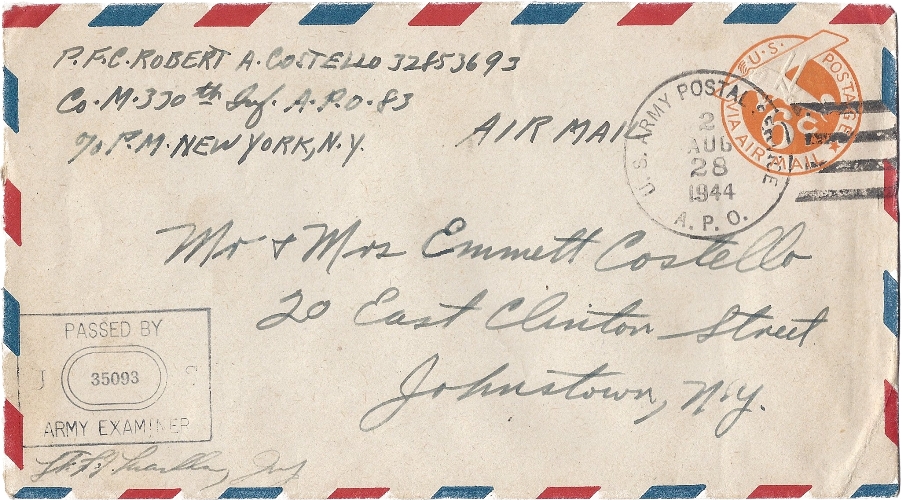 P.F.C. ROBERT A. COSTELLO 32853693
Co. M. 330th Inf. A.P.O. 83
c/o P.M. NEW YORK, N.Y.
AIR MAIL
U.S. POSTAGE
6c
VIA AIR MAIL
U.S. ARMY POSTAL SERVICE
2
AUG
28
1944
A.P.O.
Mr & Mrs Emmett Costello
20 East Clinton Street
Johnstown, N.Y.
PASSED BY
35093
ARMY EXAMINER